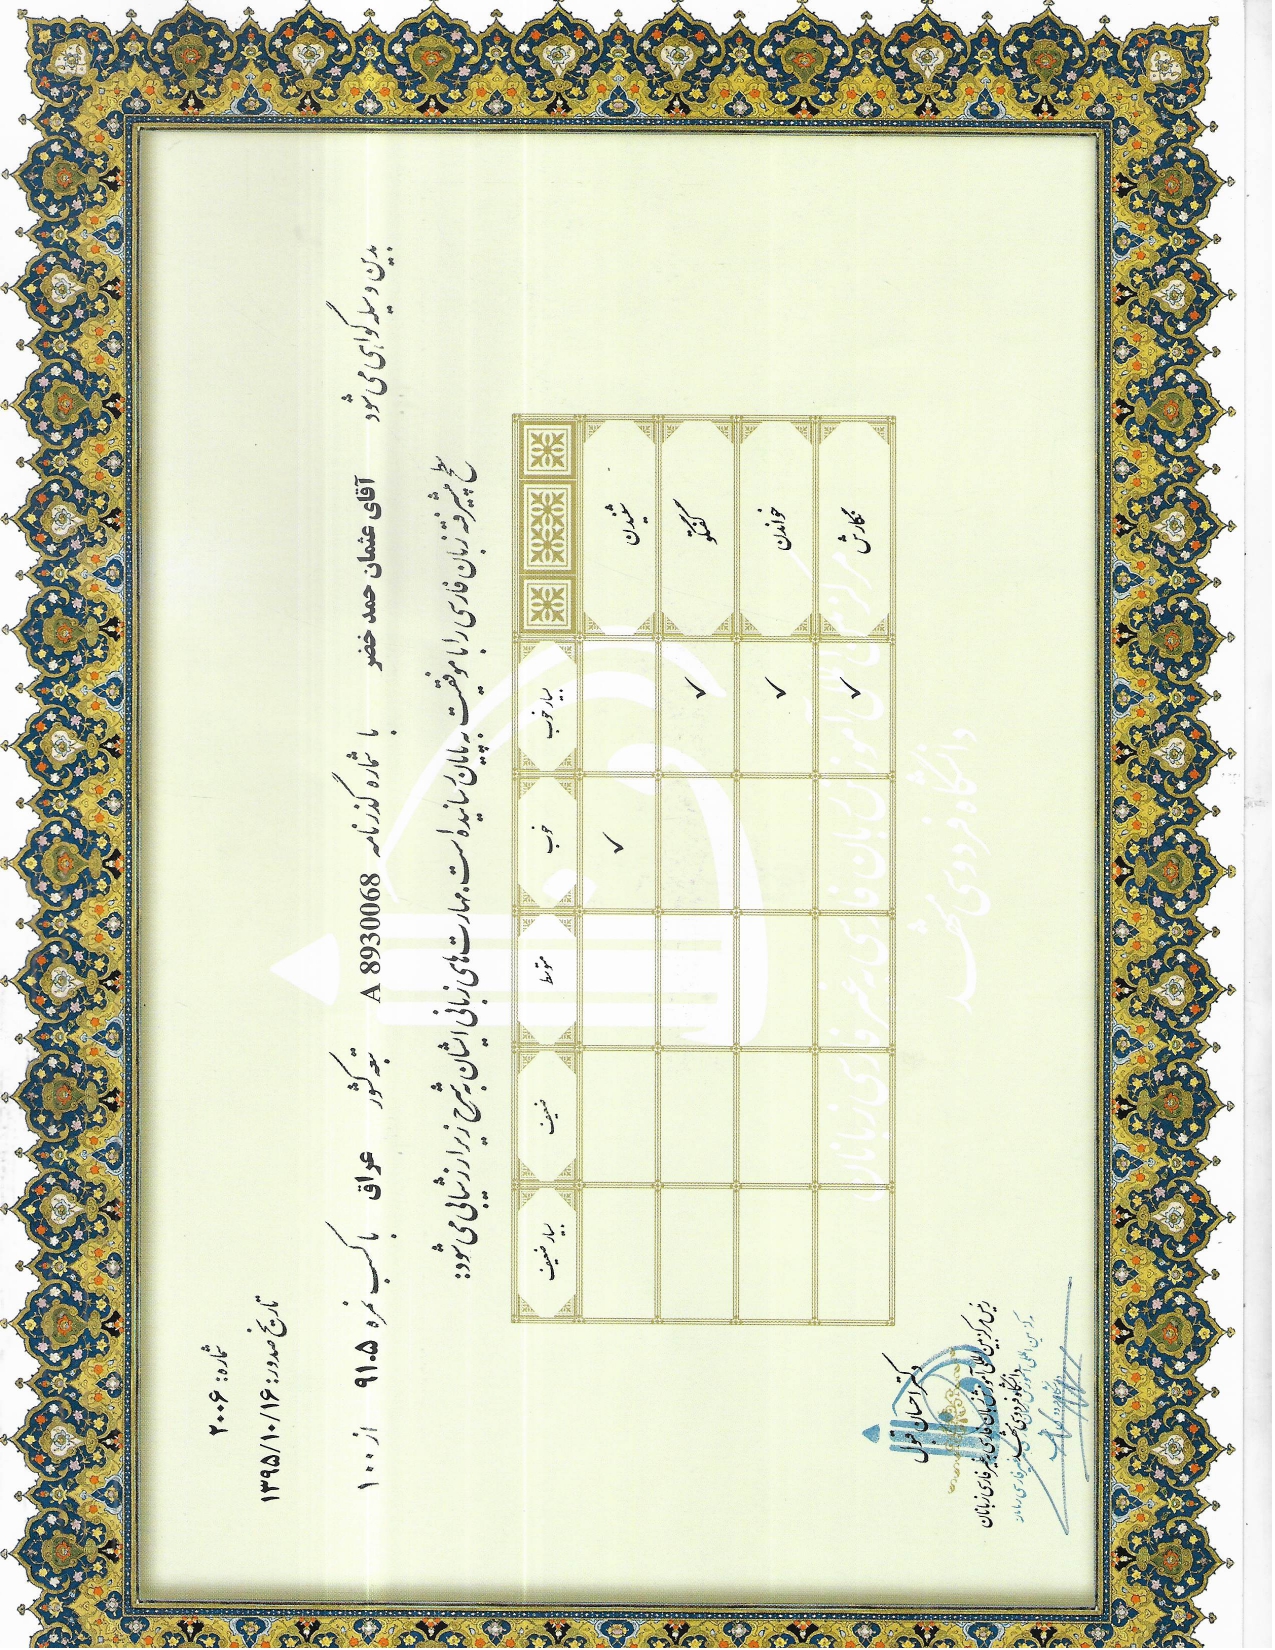 شماره: ۲۰۰۶
تاریخ صدور: ۱۳۹۵/۱۰/۱۶
بدین وسیله گواهی می شود آقای عثمان حمد خضر با شماره گذرنامه A 8930068 تبعه کشور عراق با کسب نمره ۹۱.۵ از ۱۰۰
سطح پیشرفته زبان فارسی را با موفقیت به پایان رسانیده است. مهارت‌های زبانی ایشان به شرح زیر ارزشیابی می شود:
بسیار خوب خوب متوسط ضعیف بسیار ضعیف
شنیدن ✓
گفتگو ✓
خواندن ✓
نگارش ✓
مرکز بین المللی آموزش زبان فارسی به غیر فارسی زبانان
دانشگاه فردوسی مشهد
دکتر احسان قبول
رئیس مرکز بین المللی آموزش زبان فارسی به غیر فارسی زبانان
دانشگاه فردوسی مشهد